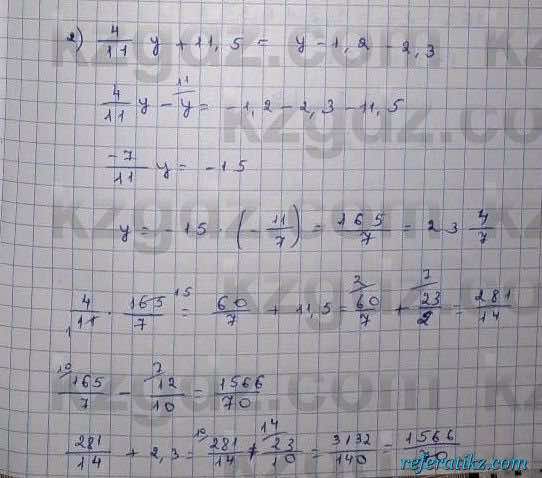 2) 4/11 y + 11,5 = y - 1,2 - 2,3
4/11 y - 11/y = -1,2 - 2,3 - 11,5
-7/11 y = -15
y = -15 · (-11/7) = 165/7 = 23 4/7
4/11 · 165/7 = 60/7 + 11,5 = 60/7 + 23/2 = 281/14
165/7 - 12/10 = 1566/70
281/14 + 2,3 = 281/14 + 23/10 = 3132/140 = 1566/70
kzgdz.com
referatikz.com